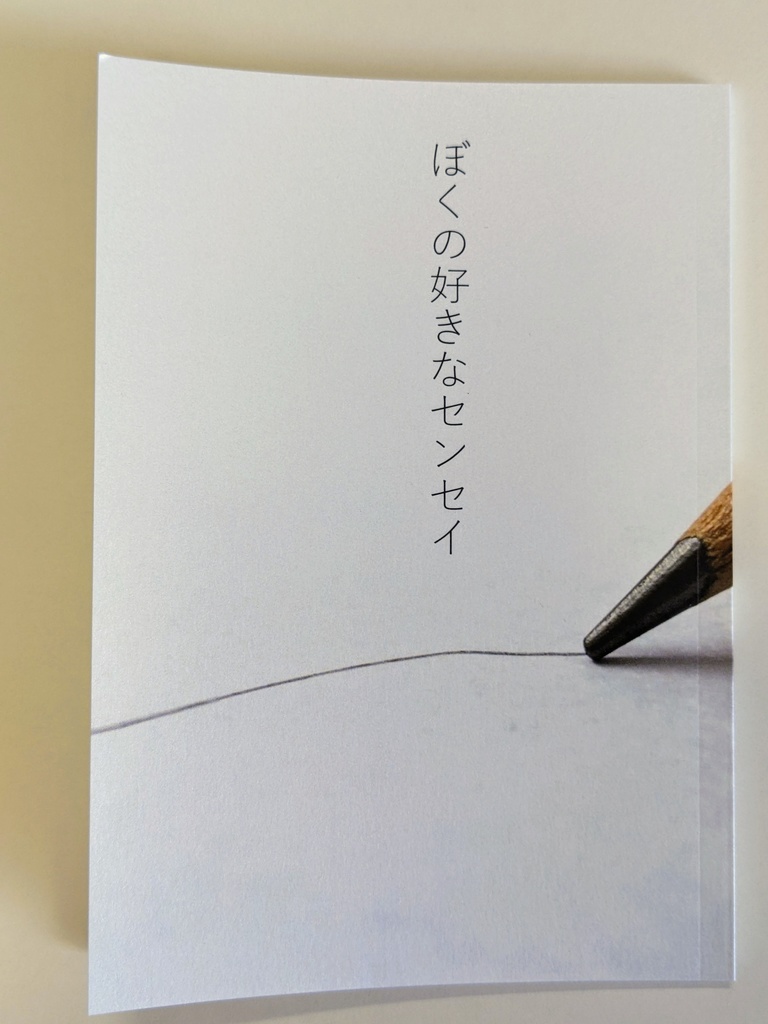 ぼくの好きなセンセイ